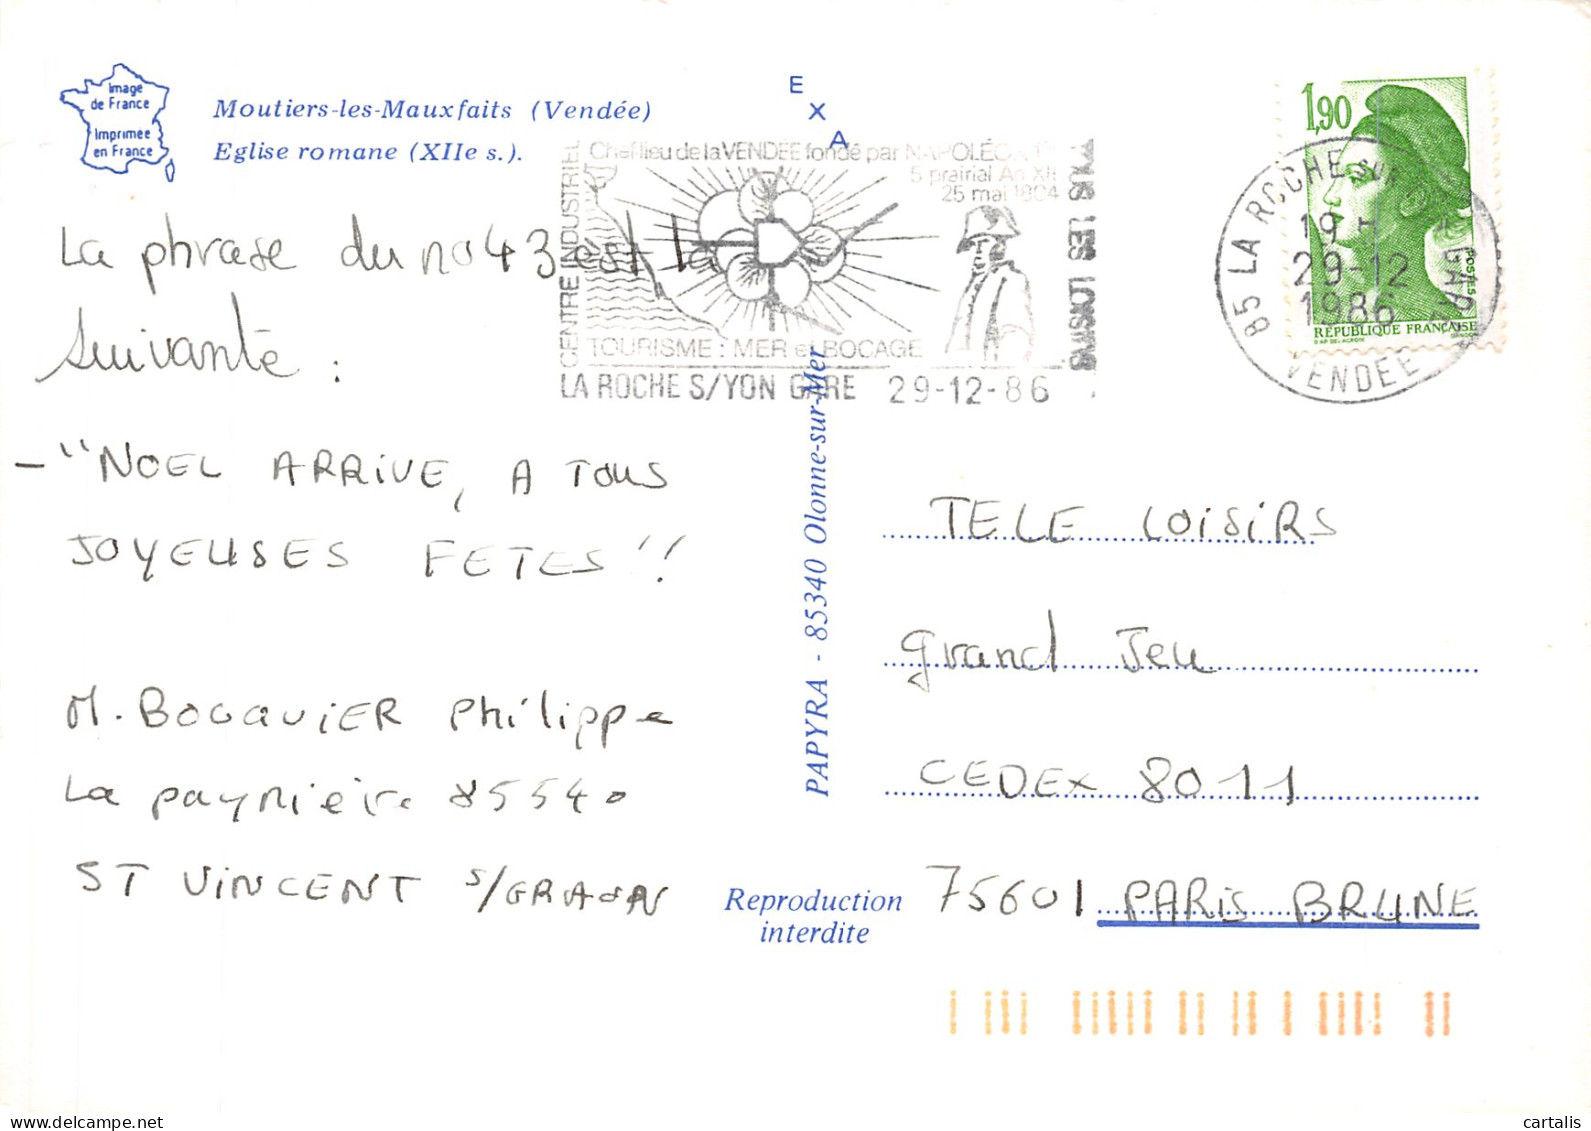 Image
de France
Imprimée
en France
Moutiers-les-Mauxfaits (Vendée)
Eglise romane (XIIe s.).
E
X
A
CENTRE INDUSTRIEL
Chef lieu de la VENDÉE fondé par NAPOLÉON 1er
5 prairial An XII
25 mai 1804
TOUS LES LOISIRS
TOURISME : MER et BOCAGE
LA ROCHE S/YON GARE 29-12-86
1,90
POSTES
RÉPUBLIQUE FRANÇAISE
85 LA ROCHE SUR YON GARE
19 H
29-12
1986
VENDEE
La phrase du no 43 est la
Suivante :
- "NOEL ARRIVE, A TOUS
JOYEUSES FETES"!
M. BOCQUIER Philippe
La paynière 85540
ST VINCENT S/GRAON
PAPYRA - 85340 Olonne-sur-Mer
Reproduction
interdite
TELE LOISIRS
Grand Jeu
CEDEX 8011
75601 PARIS BRUNE
cartalis